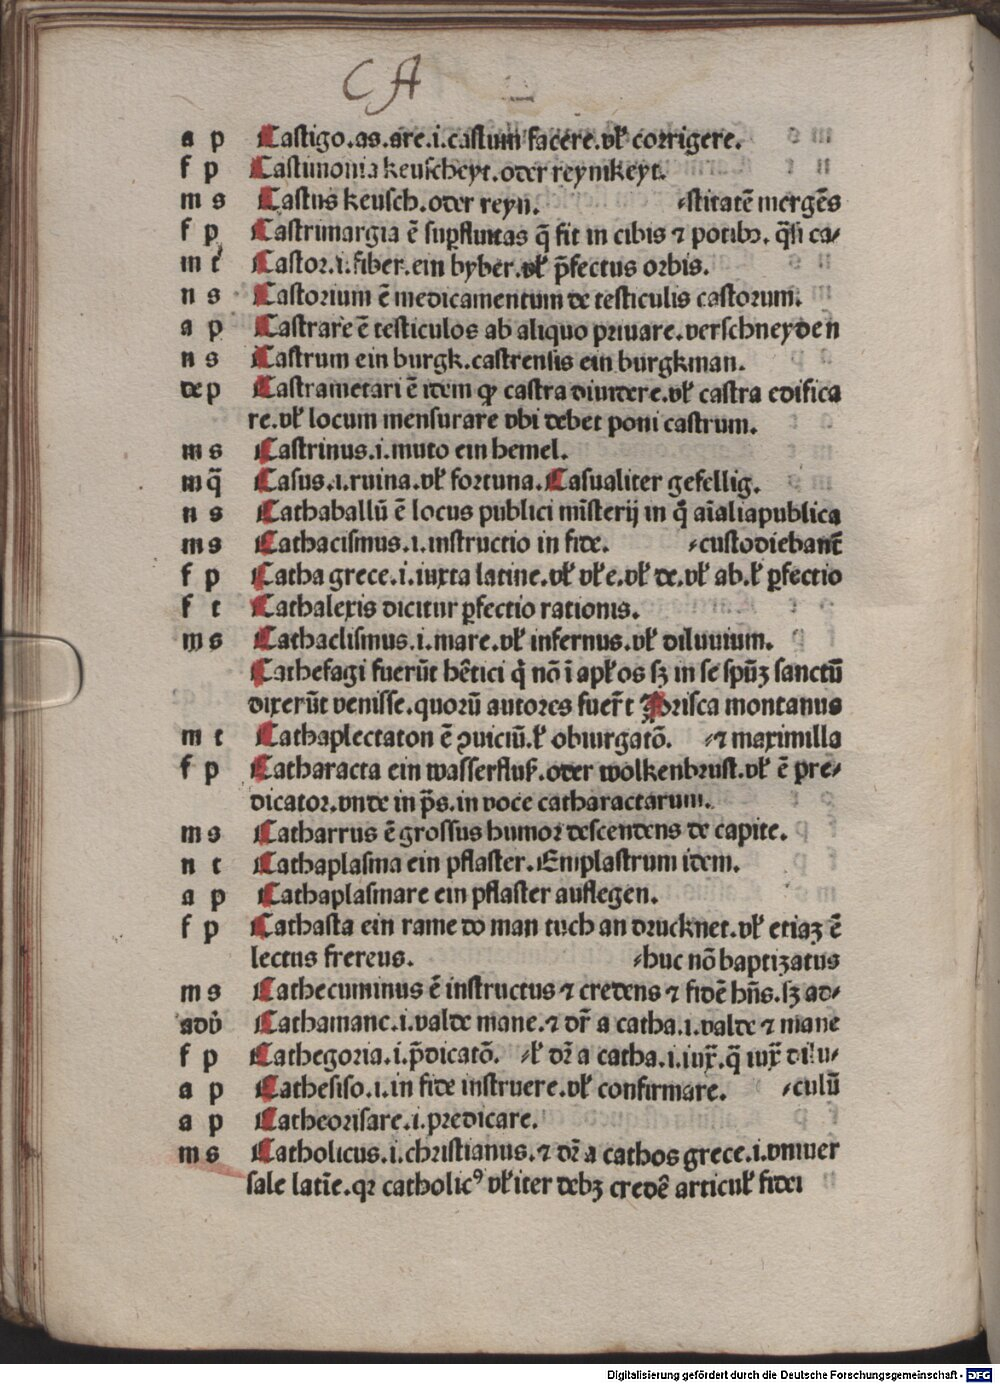 CA
a p Castigo.as.are.i.castum facere.vł corrigere.
f p Castimonia keuscheyt.oder reynikeyt.
m s Castus keusch.oder reyn. ⸗stitatē mergēs
f p Castrimargia ē suꝑfluitas q̄ fit in cibis ⁊ potibꝰ. q̄si ca⸗
m t Castor.i.fiber.ein byber.vł p̄fectus orbis.
n s Castorium ē medicamentum de testiculis castorum.
a p Castrare ē testiculos ab aliquo priuare.verschneyden
n s Castrum ein burgk.castrensis ein burgkman.
de p Castrametari ē idem qꝫ castra diuidere.vł castra edifica
re.vł locum mensurare vbi debet poni castrum.
m s Castrinus.i.muto ein hemel.
m q̄ Casus.i.ruina.vł fortuna.Casualiter gefellig.
n s Cathaballū ē locus publici mīsterij in q̊ aīalia publica
m s Cathacismus.i.instructio in fide. ⸗custodiebant̄
f p Catha grece.i.iuxta latine.vł vł e.vł de.vł ab.ł ꝑfectio
f t Cathalexis dicitur ꝑfectio rationis.
m s Cathaclismus.i.mare.vł infernus.vł diluuium.
Cathefagi fuerūt hētici q̇ nō ī apłos sꝫ in se spūꝫ sanctū
dixerūt venisse.quorū autores fuer̄t Prisca montanus
m t Cathaplectaton ē ꝯuiciū.ł obiurgatō. ⸗⁊ maximilla
f p Catharacta ein wasserfluß.oder wolkenbrust.vł ē pre⸗
dicator.vnde in p̄s.in voce catharactarum.
m s Catharrus ē grossus humor descendens de capite.
n t Cathaplasma ein pflaster.Emplastrum idem.
a p Cathaplasmare ein pflaster auflegen.
f p Cathasta ein rame do man tuch an drucknet.vł etiaꝫ ē
lectus ferreus. ⸗huc nō baptizatus
m s Cathecuminus ē instructus ⁊ credens ⁊ fidē hn̄s.sꝫ ad⸗
adv̇ Cathamane.i.valde mane.⁊ dr̄ a catha.i.valde ⁊ mane
f p Cathegoria.i.p̄dicatō. ⸗ł dr̄ a catha.i.iux̄.q̄ iux̄ dilu⸗
a p Cathesiso.i.in fide instruere.vł confirmare. ⸗culū
a p Catheorisare.i.predicare.
m s Catholicus.i.christianus.⁊ dr̄ a cathos grece.i.vniuer
sale latīe.qꝛ catholicꝰ vłiter debꝫ credē articuł fidei
Digitalisierung gefördert durch die Deutsche Forschungsgemeinschaft - DFG